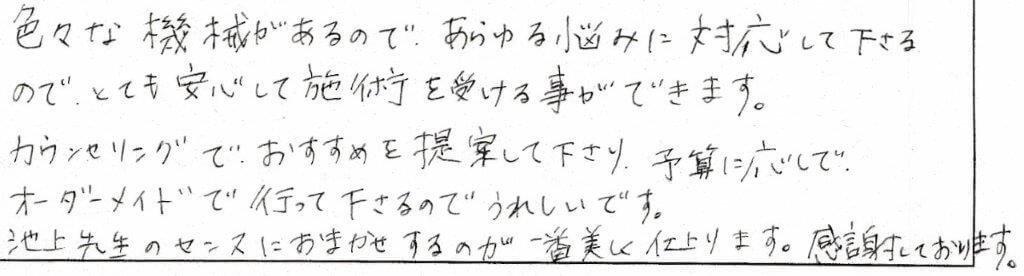 色々な機械があるので、あらゆる悩みに対応して下さる
ので、とても安心して施術を受ける事ができます。
カウンセリングで、おすすめを提案して下さり、予算に応じて、
オーダーメイドで行って下さるのでうれしいです。
池上先生のセンスにおまかせするのが一番美しく仕上ります。感謝しております。